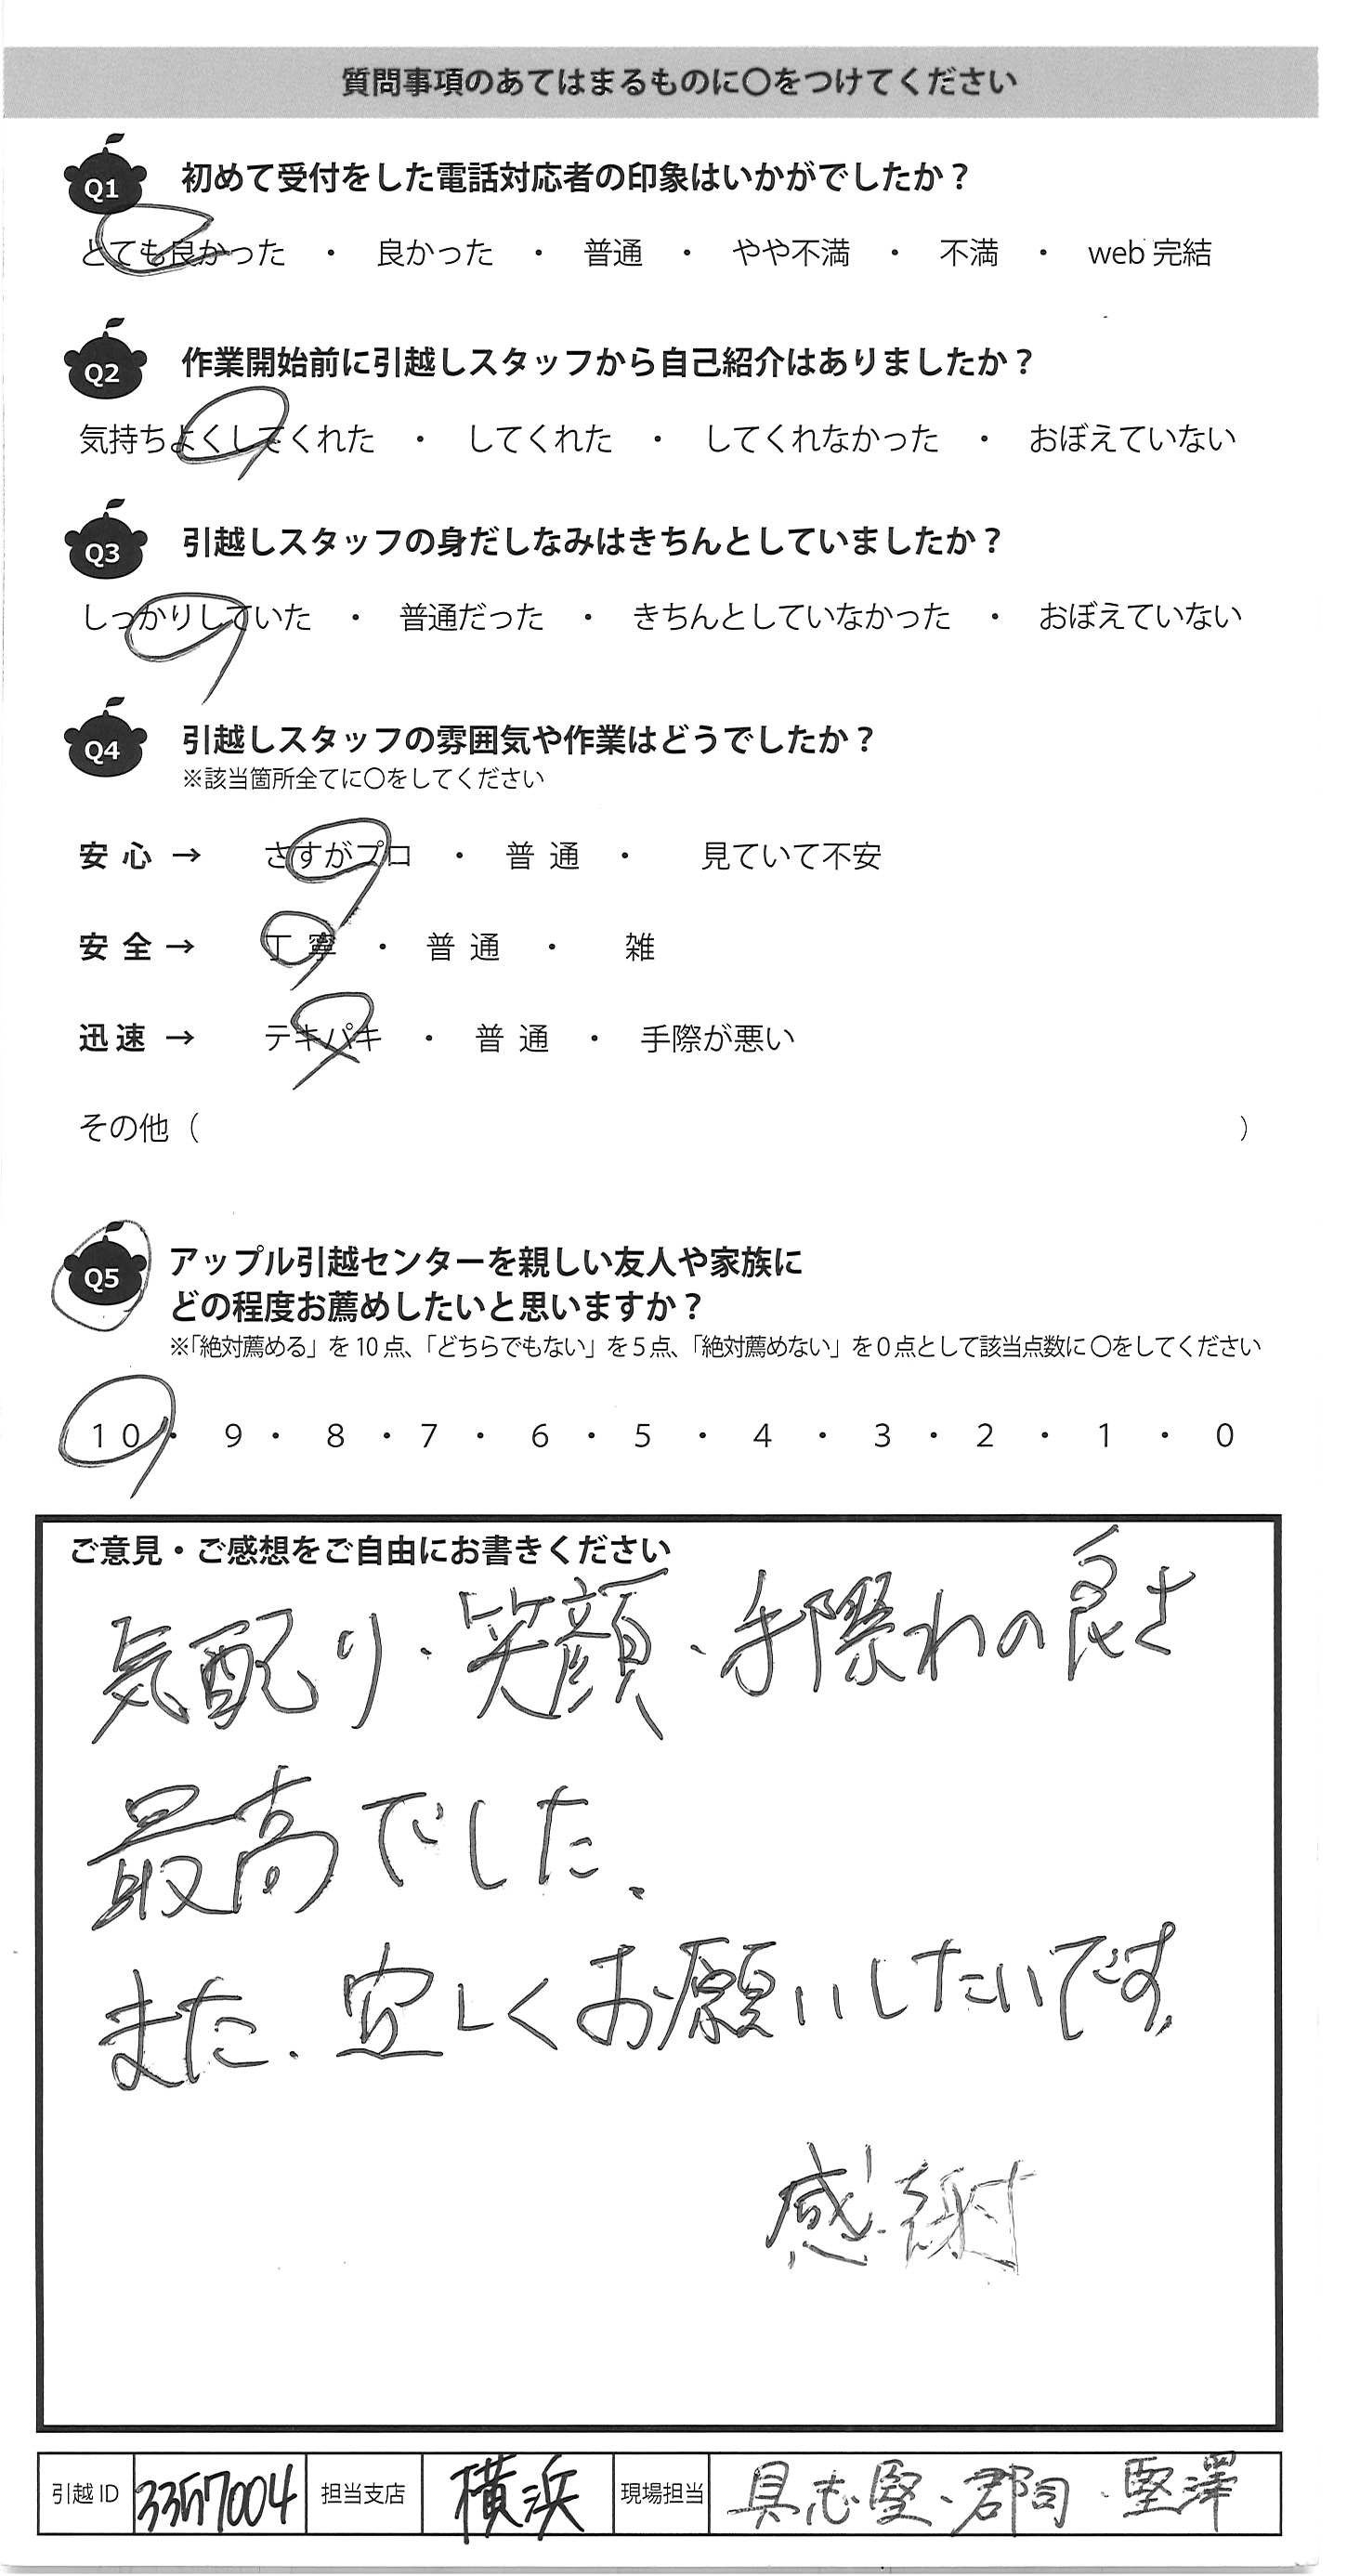 質問事項のあてはまるものに〇をつけてください
Q1 初めて受付をした電話対応者の印象はいかがでしたか？
とても良かった ・ 良かった ・ 普通 ・ やや不満 ・ 不満 ・ web 完結
Q2 作業開始前に引越しスタッフから自己紹介はありましたか？
気持ちよくしてくれた ・ してくれた ・ してくれなかった ・ おぼえていない
Q3 引越しスタッフの身だしなみはきちんとしていましたか？
しっかりしていた ・ 普通だった ・ きちんとしていなかった ・ おぼえていない
Q4 引越しスタッフの雰囲気や作業はどうでしたか？
※該当箇所全てに〇をしてください
安心 → さすがプロ ・ 普通 ・ 見ていて不安
安全 → 丁寧 ・ 普通 ・ 雑
迅速 → テキパキ ・ 普通 ・ 手際が悪い
その他（ ）
Q5 アップル引越センターを親しい友人や家族に
どの程度お薦めしたいと思いますか？
※「絶対薦める」を10点、「どちらでもない」を5点、「絶対薦めない」を0点として該当点数に〇をしてください
10 ・ 9 ・ 8 ・ 7 ・ 6 ・ 5 ・ 4 ・ 3 ・ 2 ・ 1 ・ 0
ご意見・ご感想をご自由にお書きください
気配り、笑顔、手際わの良さ
最高でした、
また、宜しくお願いしたいです、
感謝
引越ID 3357004 担当支店 横浜 現場担当 具志堅、郡司、堅澤